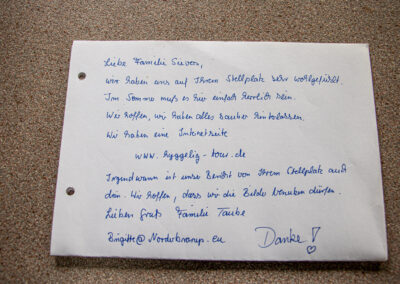 Liebe Familie Sievers,
wir haben uns auf Ihrem Stellplatz sehr wohlgefühlt.
Im Sommer muß es hier einfach herrlich sein.
Wir hoffen, wir haben alles sauber hinterlassen.
Wir haben eine Internetseite
www.hyggelig-tour.de
Irgendwann ist unser Bericht von Ihrem Stellplatz auch
drin. Wir hoffen, dass wir die Bilder benutzen dürfen.
Lieben Gruß Familie Taube
Danke!